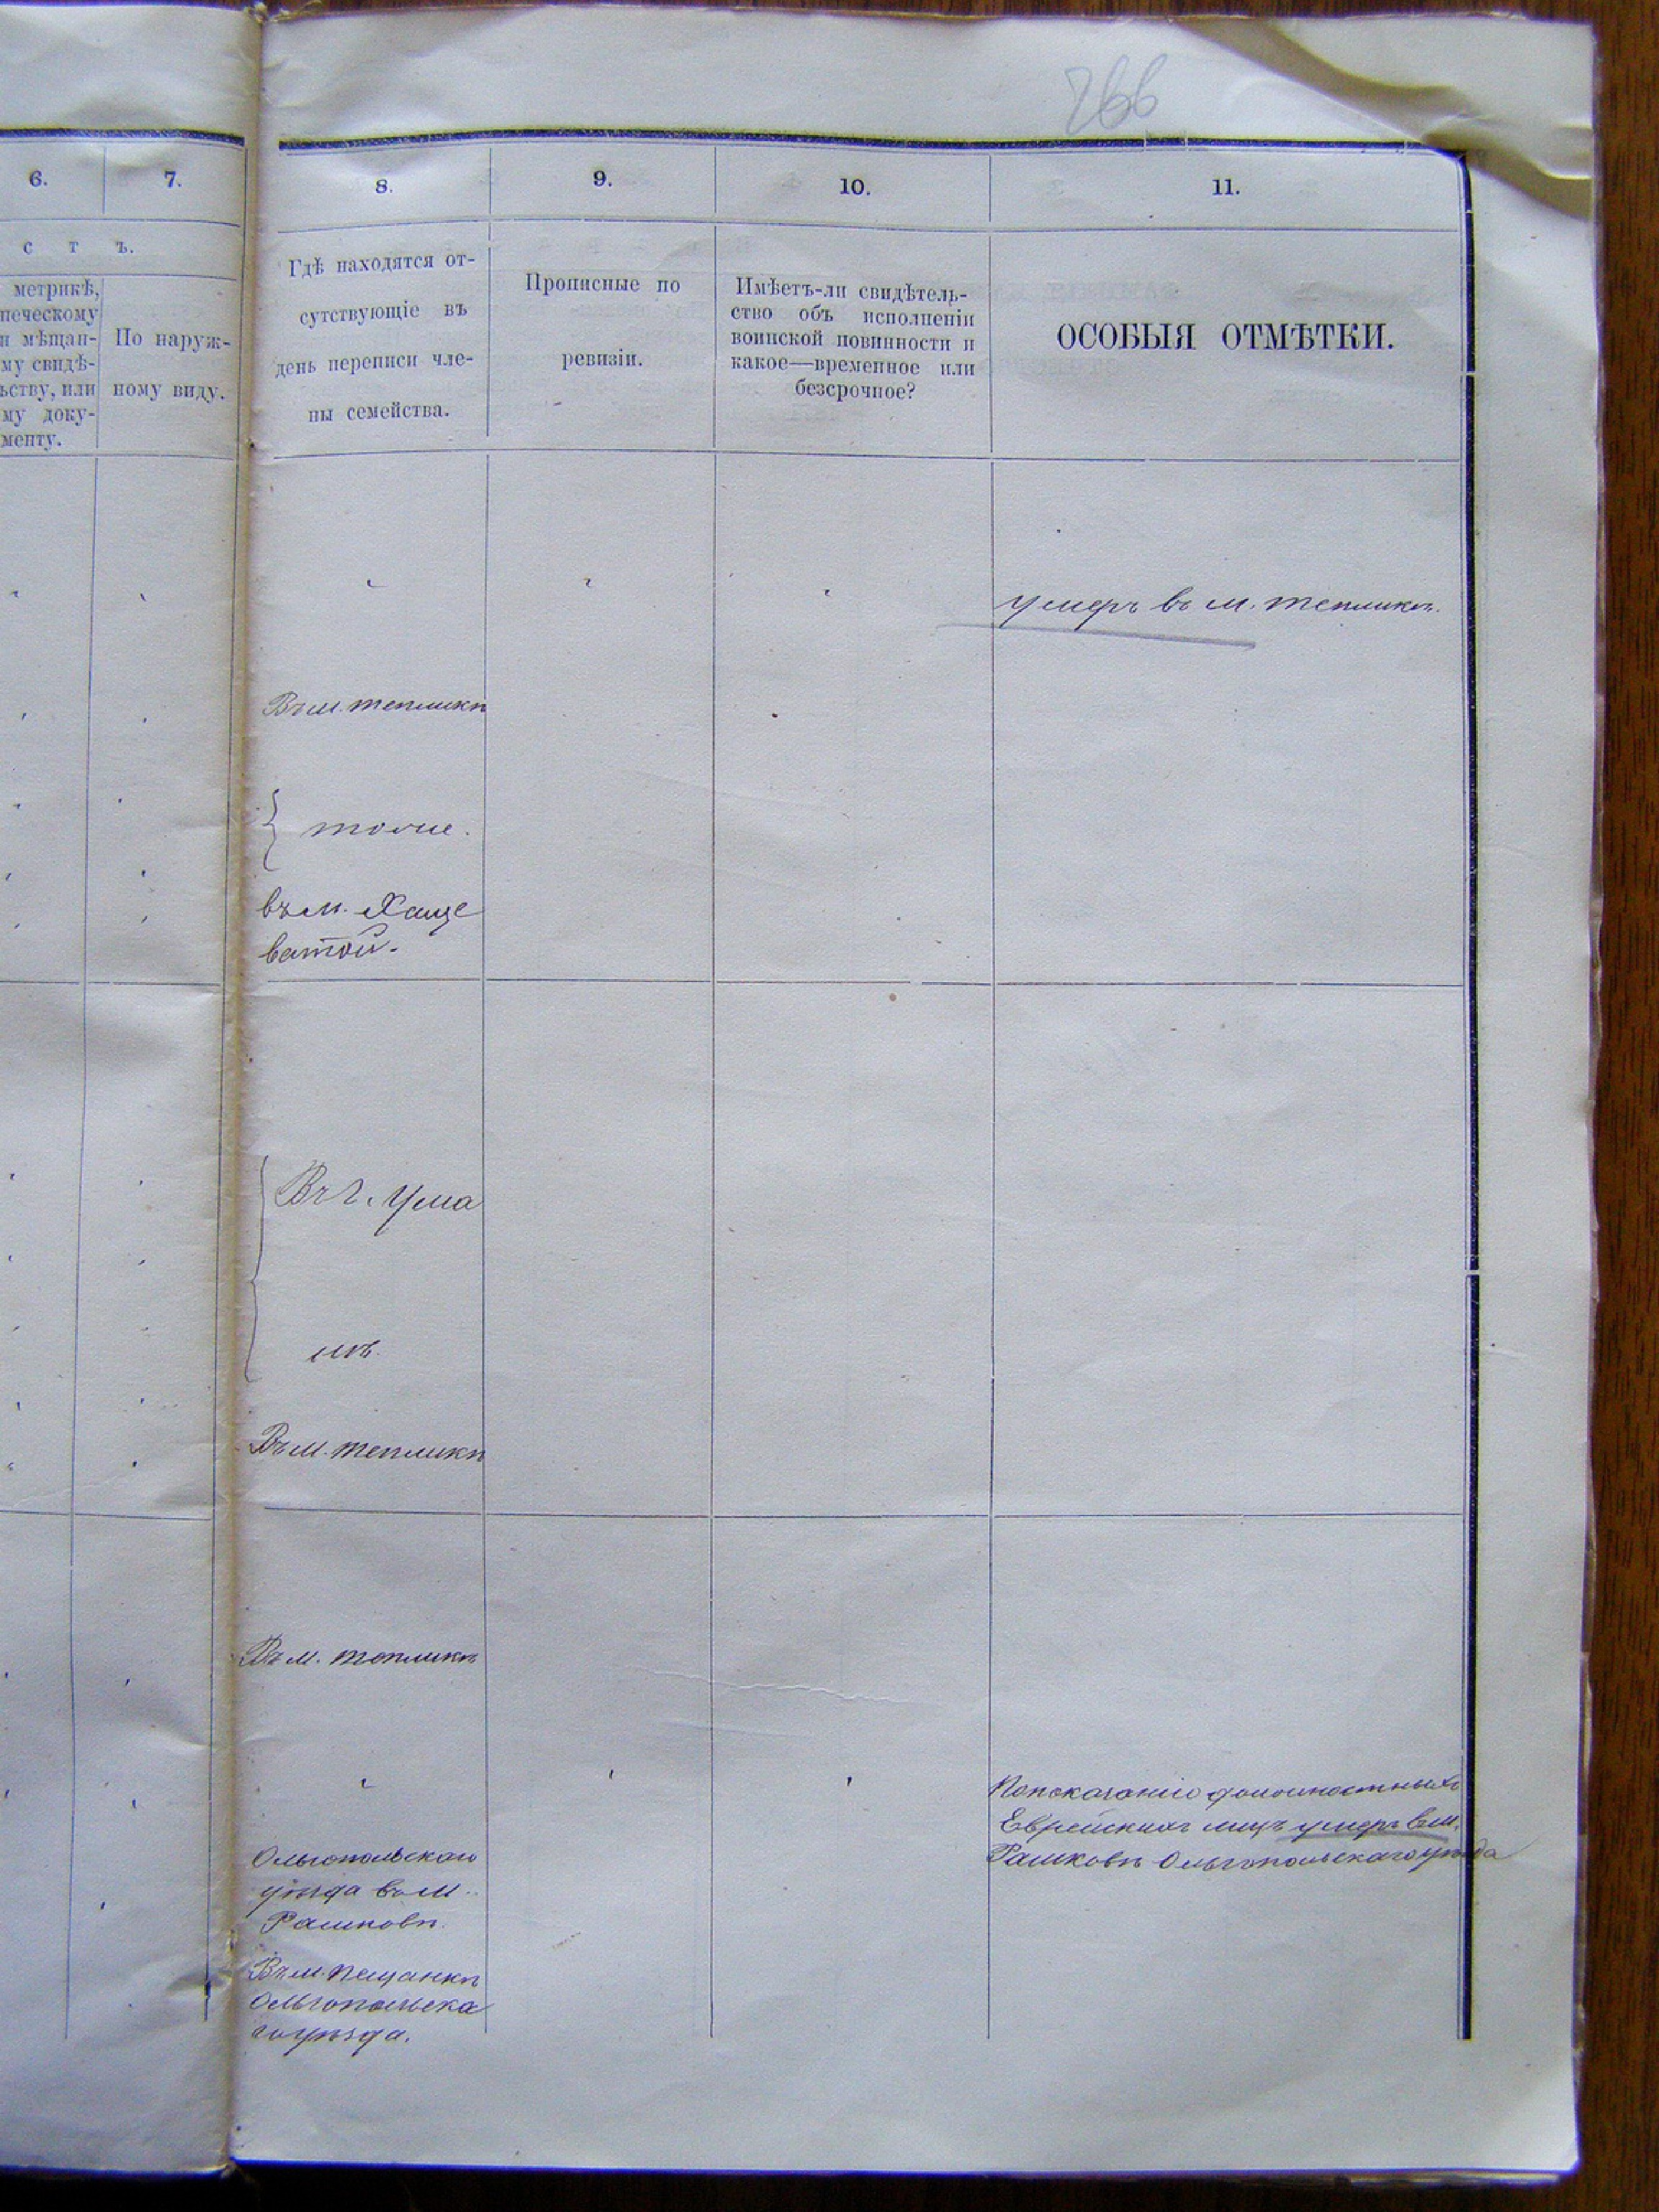 266
6.
7.
8.
9.
10.
11.
с т ъ.
метрикѣ,
печескому
и мѣщан-
му свидѣ-
ьству, или
му доку-
менту.
По наруж-
ному виду.
Гдѣ находятся от-
сутствующіе въ
день переписи чле-
ны семейства.
Прописные по
ревизіи.
Имѣетъ-ли свидѣтель-
ство объ исполненіи
воинской повинности и
какое—временное или
безсрочное?
ОСОБЫЯ ОТМѢТКИ.
умеръ въ м. Тепликѣ.
Въ м. Тепликѣ
тоже.
въ м. Хаще
ватой.
Въ г. Ума
нѣ.
Въ м. Тепликѣ
Въ м. Тепликѣ
По показанію должностныхъ
Еврейскихъ лицъ умеръ въ м.
Рашковѣ Ольгопольскаго уѣзда
Ольгопольскаго
уѣзда въ м.
Рашковѣ.
Въ м. Песчанкѣ
Ольгопольска
го уѣзда.